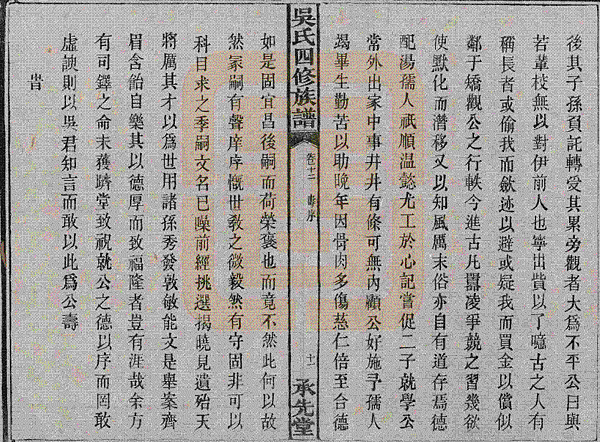 後其子孫負託轉受其累旁觀者大為不平公曰與
若輩校無以對伊前人也寧出貲以了噫古之人有
稱長者或偷我而斂迹以避或疑我而買金以償似
鄰于矯觀公之行軼今進古凡囂凌爭競之習幾欲
使默化而潛移又以知風厲末俗亦自有道存焉德
配湯孺人祇順温懿尤工於心記嘗促二子就學公
常外出家中事井井有條可無內顧公好施予孺人
竭畢生勤苦以助晚年因骨肉多傷慈仁倍至合德
吳氏四修族譜
卷十二
壽序
十一
承先堂
如是固宜昌後嗣而荷榮褒也而竟不然此何以故
然冢嗣有聲庠序慨世敎之微毅然有守固非可以
科目求之季嗣文名已噪前經挑選揭曉見遺殆天
將厲其才以為世用諸孫秀發敦敏能文是舉案齊
眉含飴自樂其以德厚而致福隆者豈有涯哉余方
有司鐸之命未獲躋堂致祝就公之德以序而罔敢
虛諛則以吳君知言而敢以此為公壽